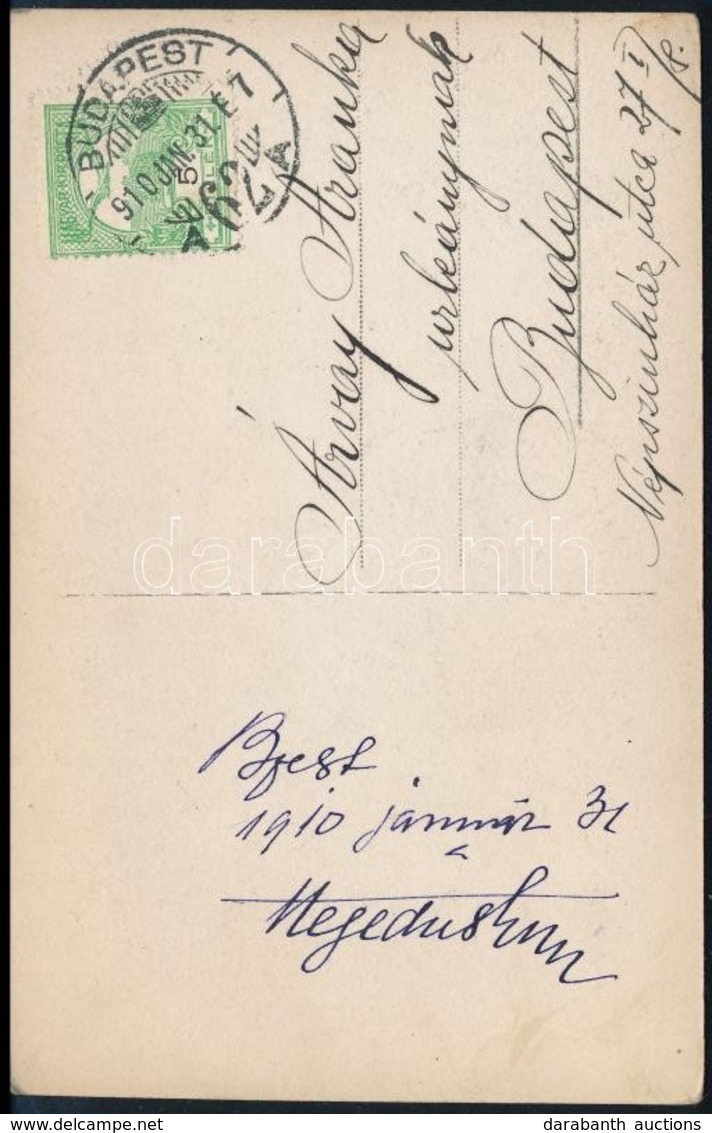 BUDAPEST
910 JAN. 31. E 7
62
A
5
Árvay Aranka
urleánynak
Budapest
Népszínház utca 27 I/8.
darabanth
Bpest
1910 január 31
Hegedus
darabanth auctions